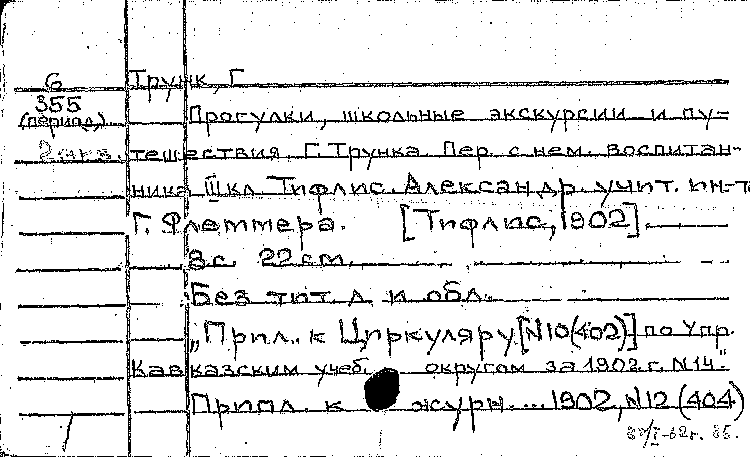 G Трунк, Г.
355 Прогулки, школьные экскурсии и пу-
(период)
2 экз. тешествия Г. Трунка Пер. с нем. воспитан-
ника III кл. Тифлис. Александр. учит. ин-т
Г. Флеттера. [Тифлис, 1902].
8 с. 22 см.
Без тит. л. и обл.
"Прил. к Циркуляру [N10(402)] по Упр.
Кавказским учеб. округом за 1902 г. N14."
Припл. к журн. ... 1902, N12 (404)